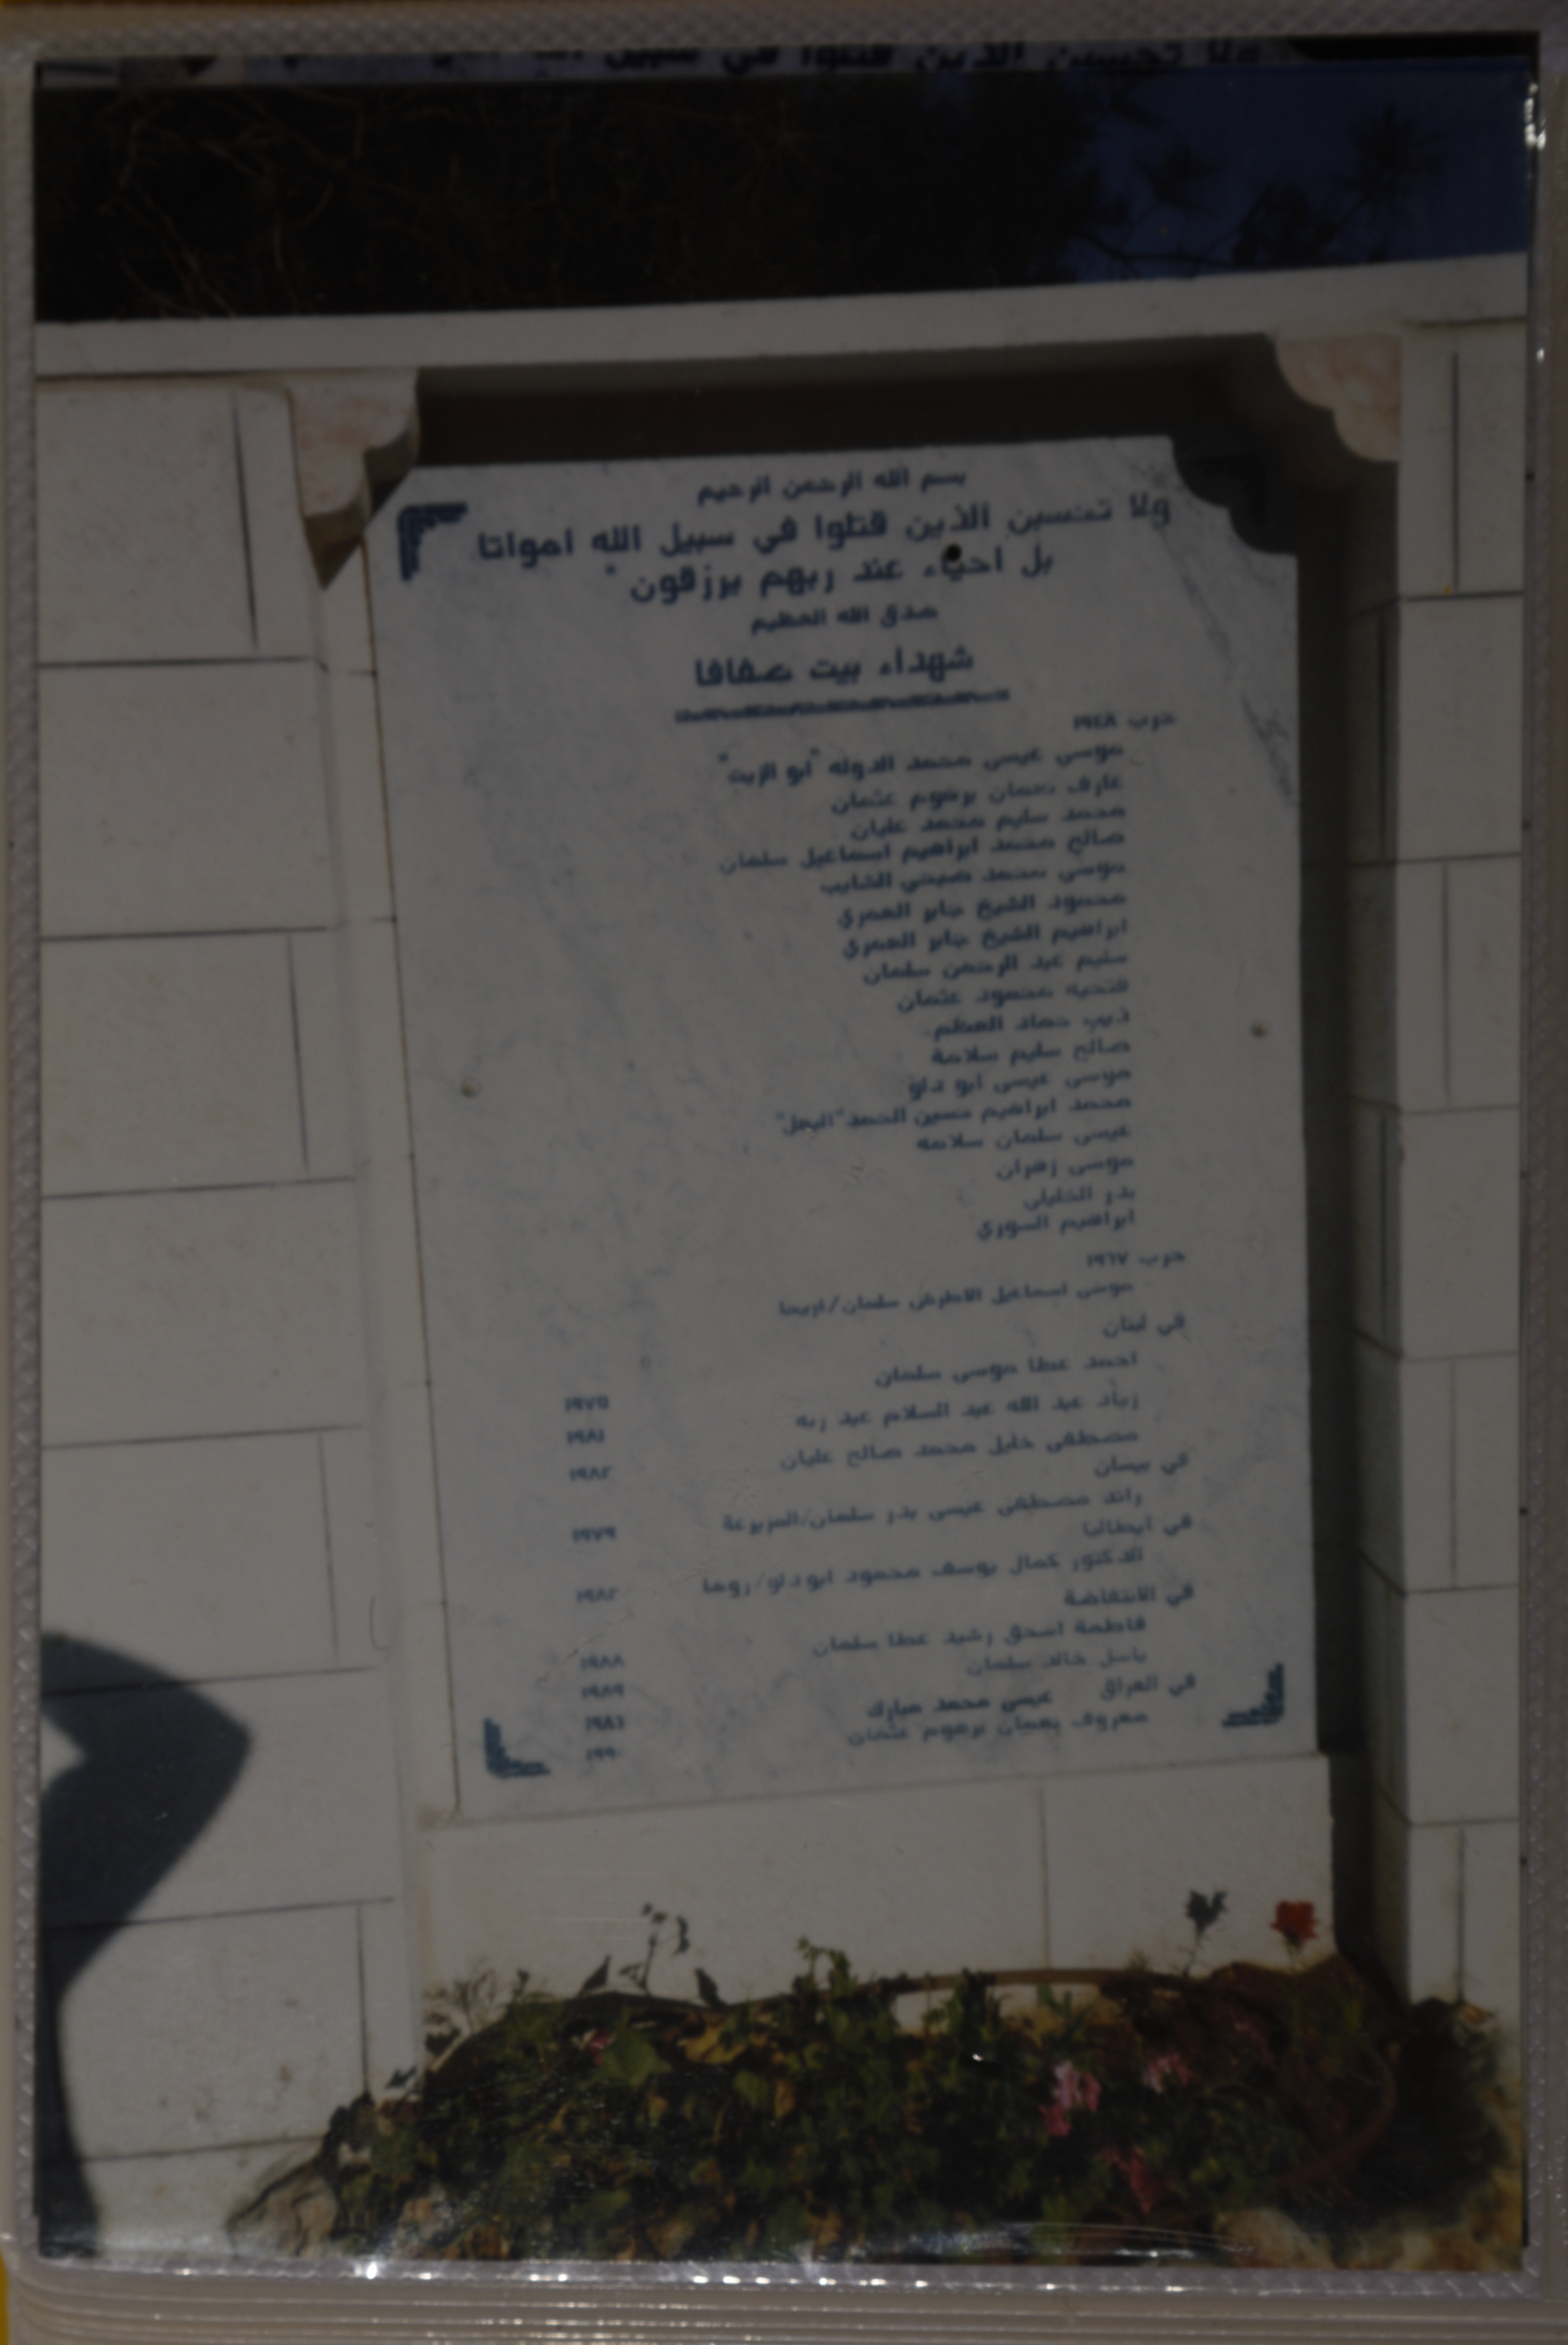 ولا تحسبن الذين قتلوا في سبيل
بسم الله الرحمن الرحيم
ولا تحسبن الذين قتلوا في سبيل الله امواتا
بل احياء عند ربهم يرزقون "
صدق الله العظيم
شهداء بيت صفافا
حرب ١٩٤٨
موسى عيسى محمد الدوله "ابو الزيت"
عارف نعمان برهوم عثمان
محمد سليم محمد عليان
صالح محمد ابراهيم اسماعيل سلمان
موسى محمد صبحي الشايب
محمود الشيخ جابر العمري
ابراهيم الشيخ جابر العمري
سليم عبد الرحمن سلمان
فتحيه محمود عثمان
ذيب حماد العظم
صالح سليم سلامة
موسى عيسى ابو دلو
محمد ابراهيم حسين الحمد
عيسى سلمان سلامه
موسى زهران
بدر الخليلي
ابراهيم السوري
حرب ١٩٦٧
موسى اسماعيل الاطرش سلمان/اريحا
في لبنان
احمد عطا موسى سلمان ١٩٧٥
زياد عبد الله عبد السلام عبد ربه ١٩٨١
مصطفى خليل محمد صالح عليان ١٩٨٢
في بيسان
رائد مصطفى عيسى بدر سلمان/المزيرعة ١٩٧٩
في ايطاليا
الدكتور كمال يوسف محمود ابو دلو/روما ١٩٨٢
في الانتفاضة
فاطمة اسحق رشيد عطا سلمان ١٩٨٨
باسل خالد سلمان ١٩٨٩
في العراق عيسى محمد مبارك ١٩٨٦
معروف نعمان برهوم عثمان ١٩٩٠